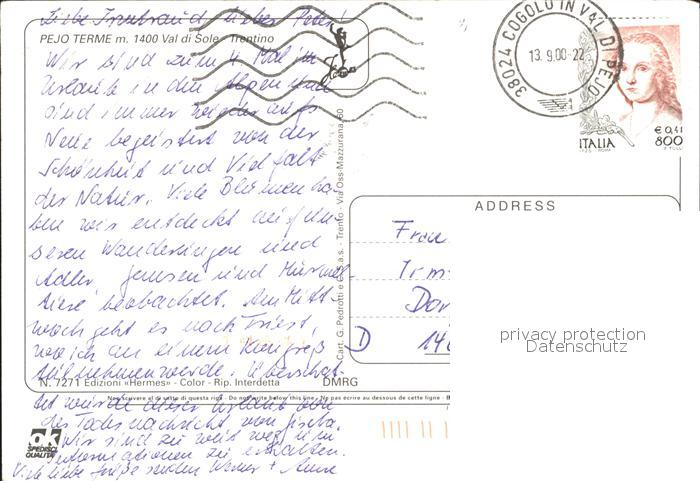 Liebe Irmtraud, lieber Peter!
PEJO TERME m. 1400 Val di Sole - Trentino
Wir sind zum 4. Mal im
Urlaub in den Alpen und
sind immer wieder aufs
Neue begeistert von der
Schönheit und Vielfalt
der Natur. Viele Blumen ha-
ben wir entdeckt auf un-
seren Wanderungen und
Adler, Gemsen und Murmel-
tiere beobachtet. Am Mitt-
woch geht es nach Triest,
wo ich an einem Kongreß
teilnehmen werde. Überschat-
N. 7271 Edizioni «Hermes» - Color - Rip. Interdetta DMRG
tet wurde dieser Urlaub von
Non scrivere al di sotto di questa riga - Do not write below this line - Ne pas écrire au dessous de cette ligne - B
der Todesnachricht von
Wir sind zu weit weg, um
Informationen zu erhalten.
Viele liebe Grüße senden Werner + Anne
ok
SPEDISCI
QUALITÀ
Cart. G. Pedrotti e C. s.a.s. - Trento - Via Oss-Mazzurana, 60
38024 COGOLO IN VAL DI PEJO
13.9.00-22
€ 0,41
800
ITALIA
ADDRESS
Frau
Irm
Dor
D 14
privacy protection
Datenschutz